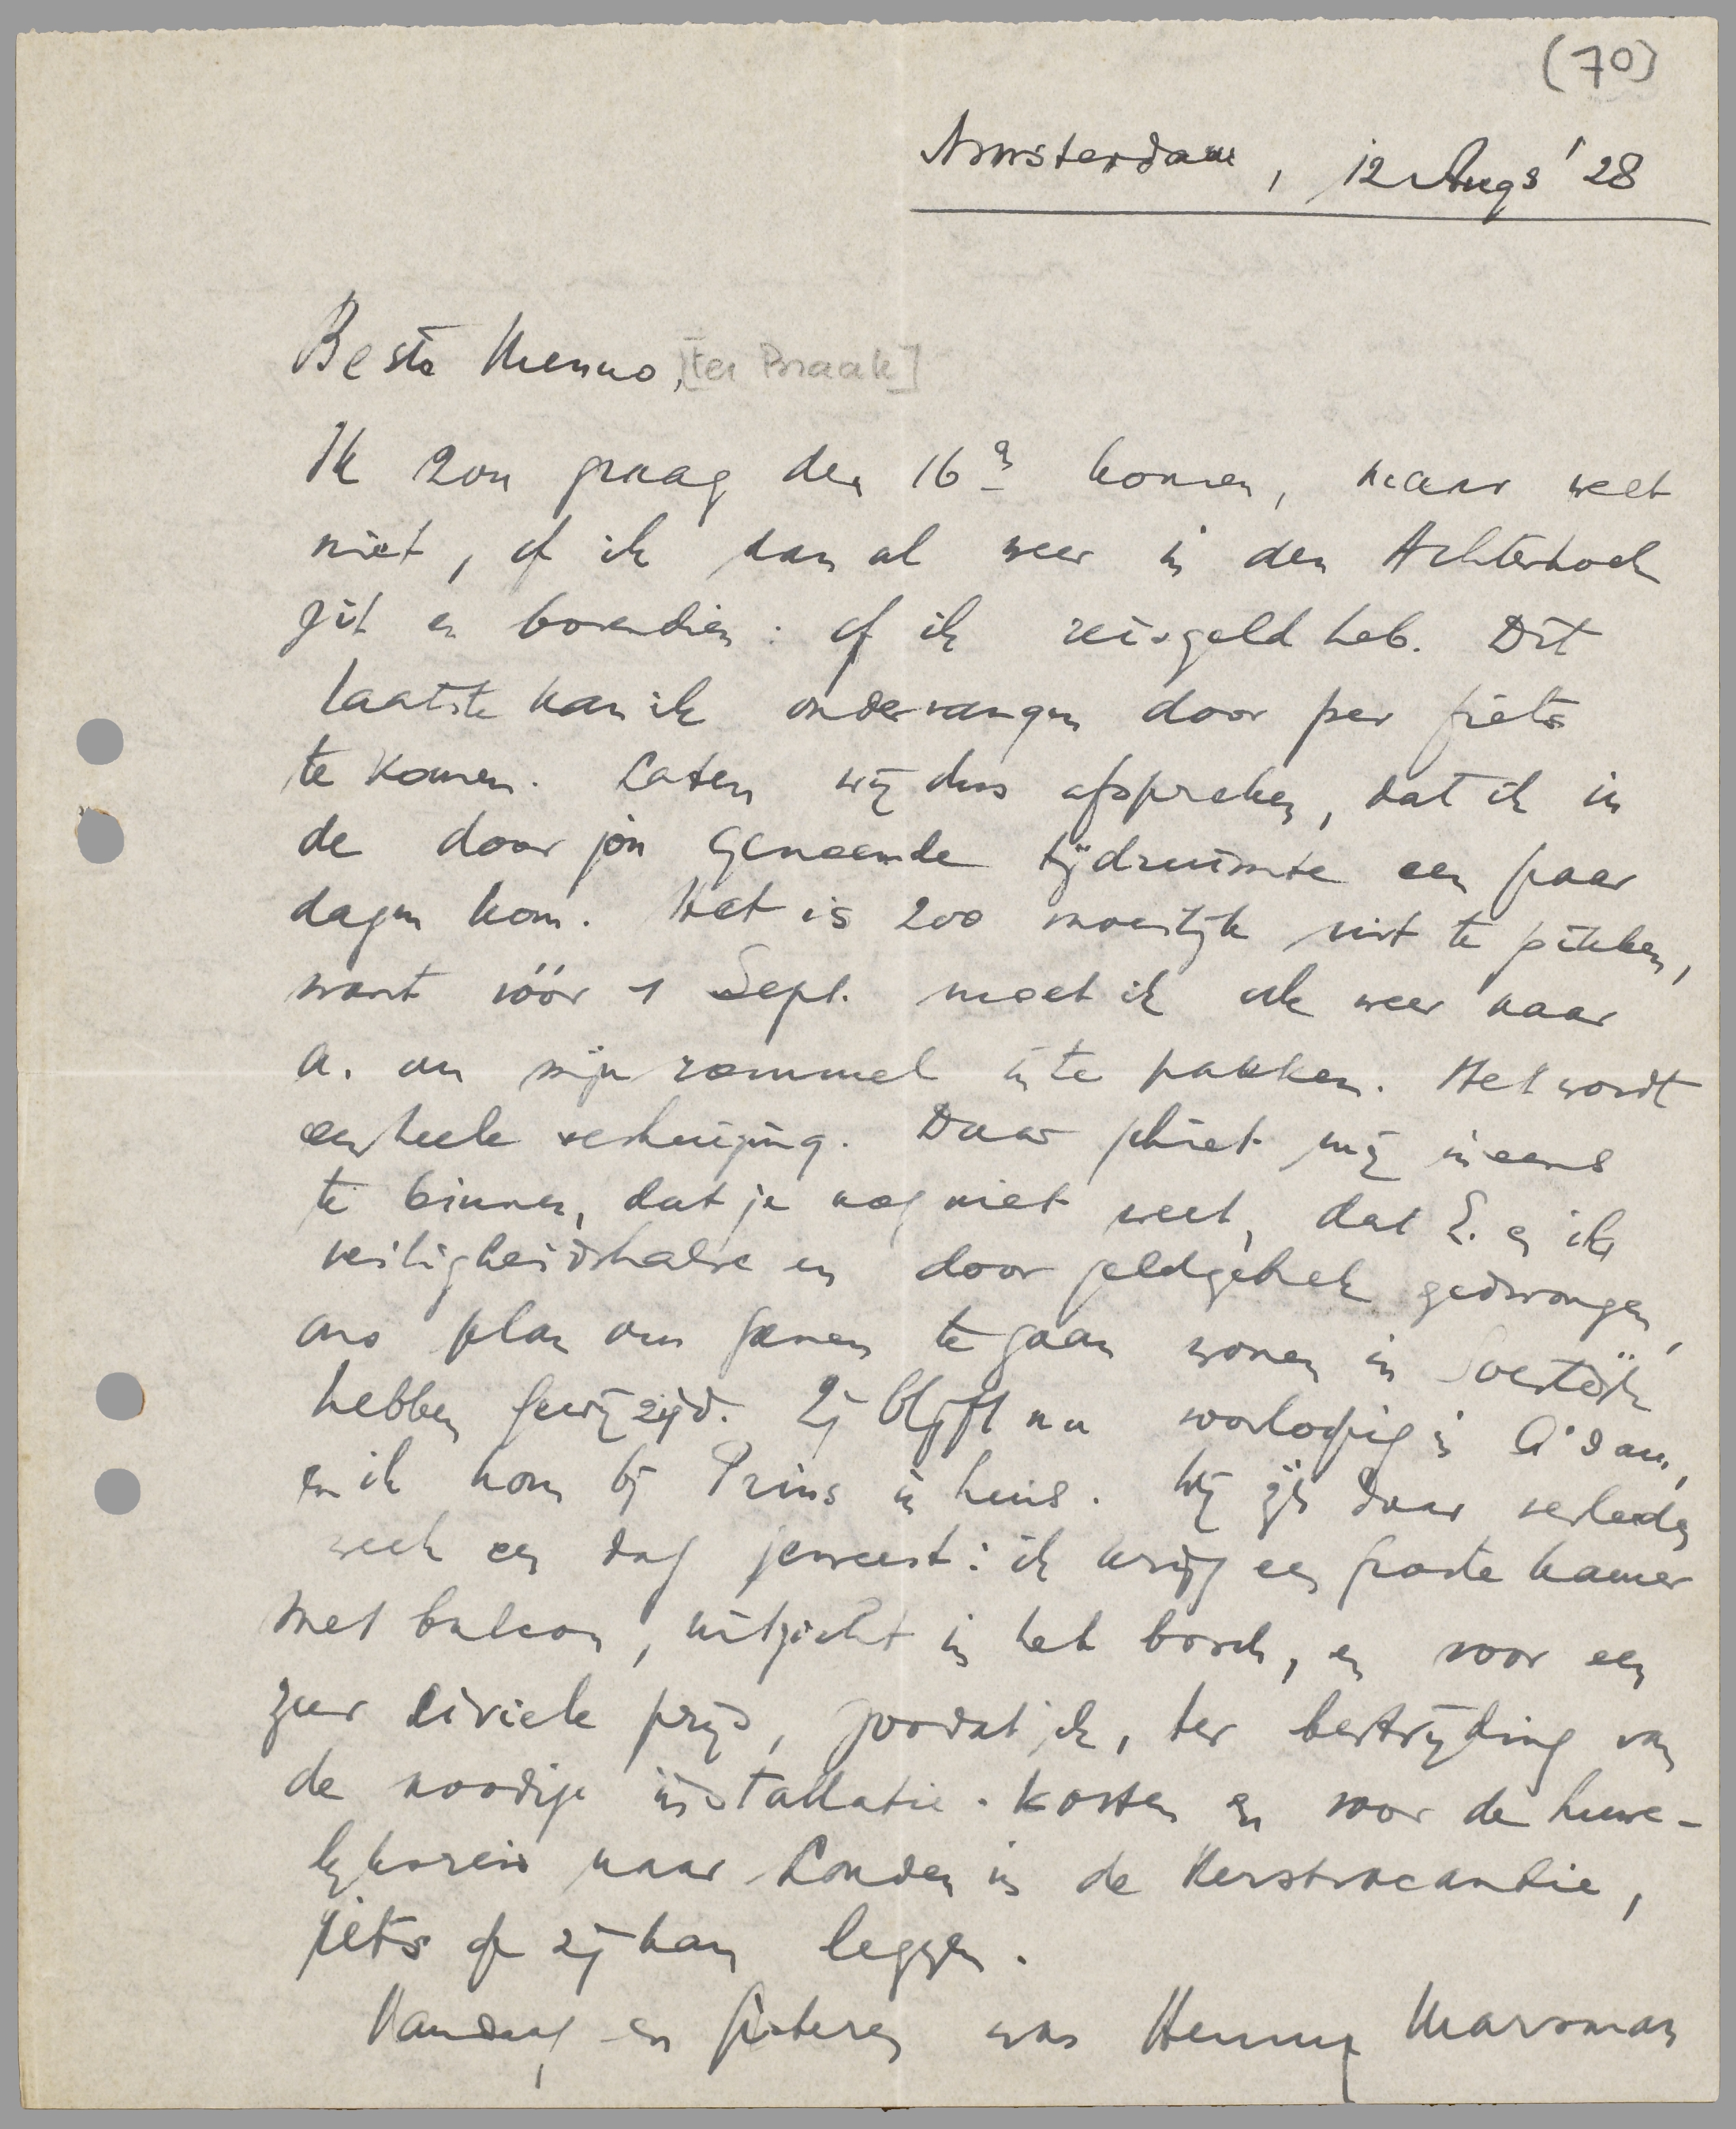 (70)
Amsterdam, 12 Aug's '28
Beste Menno, [ter Braak]
Ik zou graag den 16e komen, maar weet
niet, of ik dan al weer in den Achterhoek
zit en bovendien: of ik reisgeld heb. Dit
laatste kan ik ondervangen door per fiets
te komen. Laten wij dus afspreken, dat ik in
de door jou genoemde tijdruimte een paar
dagen kom. Het is zoo moeilijk uit te pikken,
want vóór 1 Sept. moet ik ook weer naar
A. om mijn rommel in te pakken. Het wordt
een heele verhuizing. Daar schiet mij ineens
te binnen, dat je nog niet weet, dat E. en ik
veiligheidshalve en door geldgebrek gedwongen,
ons plan om samen te gaan wonen in Soestdijk
hebben gewijzigd. Zij blijft nu voorloopig in A'dam,
en ik kom bij Prins in huis. Wij zijn daar verleden
week een dag geweest: ik krijg een groote kamer
met balcon, uitzicht in het bosch, en voor een
zeer civiele prijs, zoodat ik, ter bestrijding van
de noodige installatie-kosten en voor de huwe-
lijksreis naar Londen in de Kerstvacantie,
iets op zij kan leggen.
Vandaag en gisteren was Henny Marsman